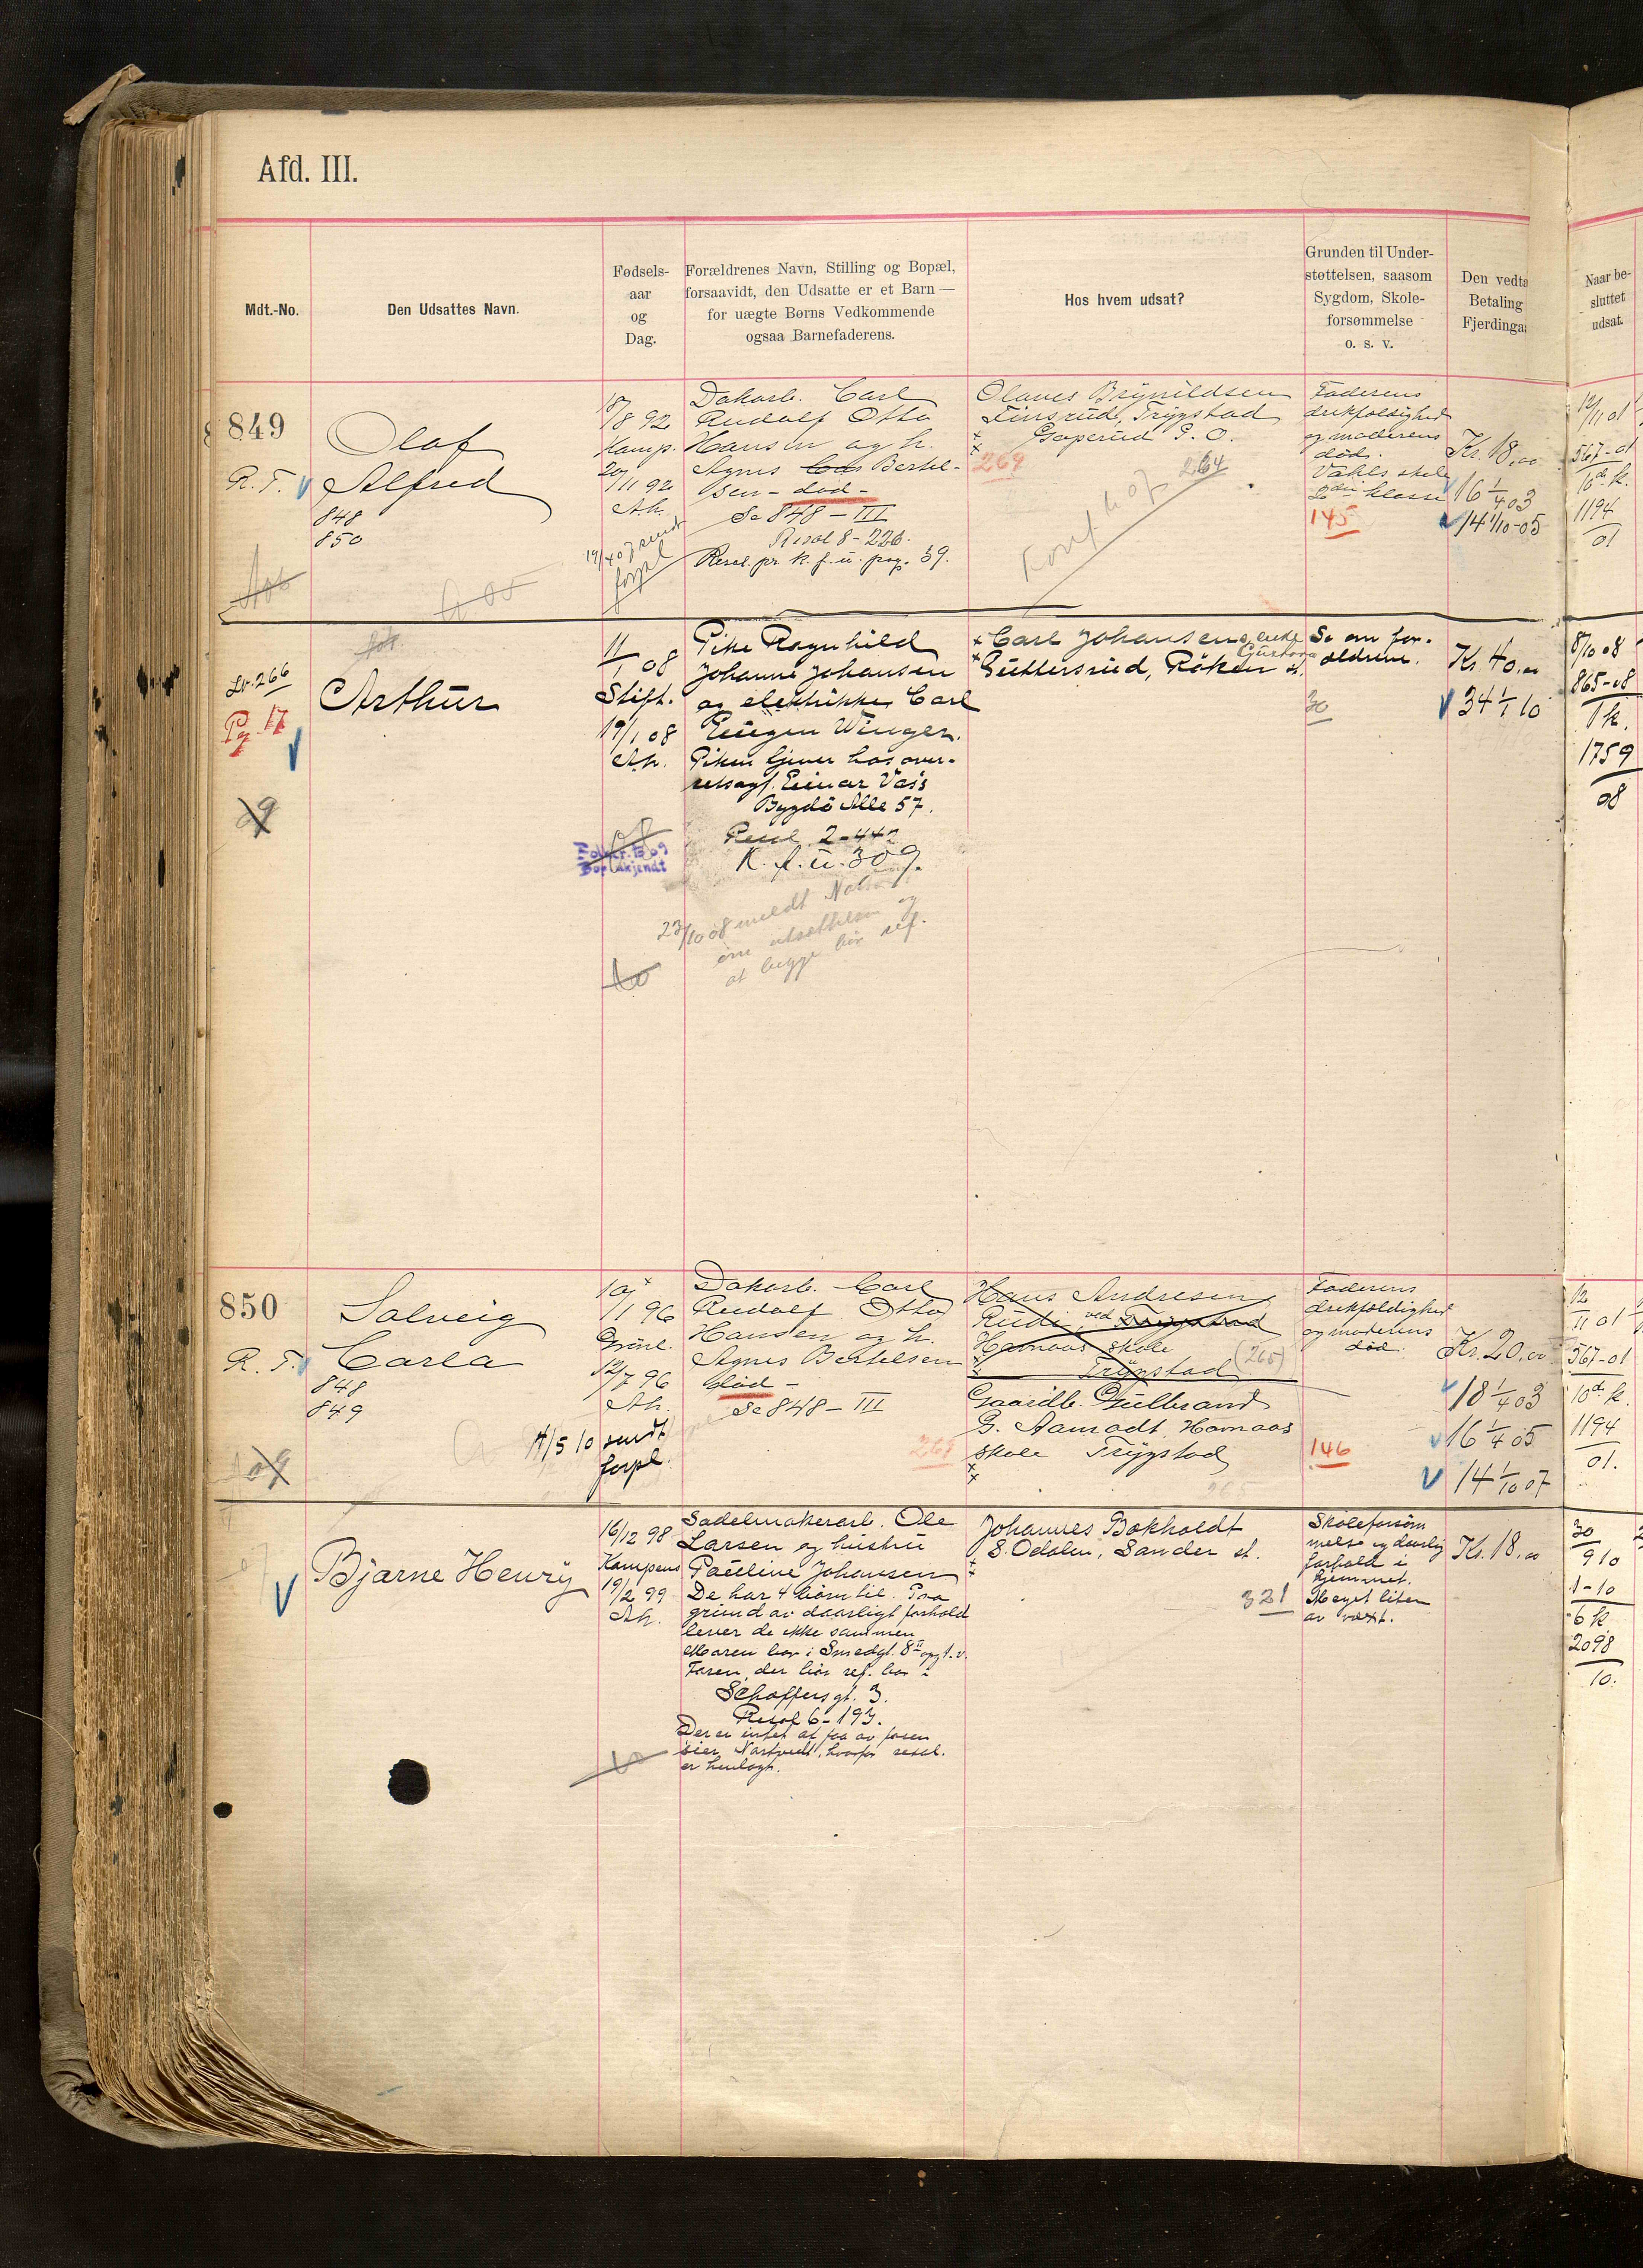 Afd. III.
Mdt.-No.
Den Udsattes Navn.
Fødsels-
aar
og
Dag.
Forældrenes Navn, Stilling og Bopæl,
forsaavidt, den Udsatte er et Barn —
for uægte Børns Vedkommende
ogsaa Barnefaderens.
Hos hvem udsat?
Grunden til Under-
støttelsen, saasom
Sygdom, Skole-
forsømmelse
o. s. v.
Den vedta
Betaling
Fjerdinga
Naar be-
sluttet
udsat.
849
R. T.
Olaf
Alfred
848
850
18/8 92
Kamp.
20/11 92
Ak.
19/4 07 sendt
forpl
Dokarb. Carl
Rudolf Otto
Hansen og h.
Agnes Bertel-
sen - död -
Se 848 - III
Resol 8 - 226.
Resol. pr. k. f. u. pag. 59.
Olaves Brynildsen
Finsrud, Trygstad
Gaperud P. O.
269
264
Konf. h. 07
Faderens
drikfældighed
og moderens
död.
Vahls skole
2den klasse
145
Kr. 18,00
16 1/4 03
14 1/10-05
12/11 01
567-01
10d. k.
1194
01
Lr. 266
Pg. 17
Arthur
11/1 08
Stift.
19/1 08
Ak.
Pike Ragnhild
Johanne Johansen
og elektriker Carl
Eugen Winger.
Piken tjener hos over-
retssagf. Einar Vas's
Bygdö Alle 57.
Resol. 2-442
K. f. u. 309.
23/10 08 meldt
om utsættelsen og
at begge bör ref.
Carl Johansen
Guttersrud, Röken st.
Se om for-
ældrene.
30
Kr. 40.00
34 1/1 10
8/10 08
865-08
1 k.
1759
08
850
R. T.
Solveig
Carla
848
849
10/1 96
Grünl.
12/7 96
Ak.
11/5 10 sendt
forpl.
Dokarb. Carl
Rudolf Otto
Hansen og h.
Agnes Bertelsen
död -
Se 848 - III
Hans Andresen
Rudi ved Trygstad
Hamaas skole
Trygstad (265)
Gaardb. Gulbrand
G. Aamodt, Hamaas
skole Trygstad
265
Faderens
drikfældighed
og moderens
död.
146
Kr. 20,00
18 1/4 03
16 1/4 05
14 1/10 07
12/11 01
567-01
10d. k.
1194
01.
Bjarne Henry
16/12 98
Kampens
19/2 99
Ak.
Sadelmakerarb. Ole
Larsen og hustru
Pauline Johansen
De har 4 börn til. Paa
grund av daarligt forhold
lever de ikke sammen
Moren bor i Smedgt. 8 II opg. t. v.
Faren, der bör ref. bor i
Schaffersgt. 3.
Resol 6-193.
Der er intet at faa av faren
sier Nartvedt, hvorfor resol.
er henlagt.
Johannes Bokholdt
S. Odalen, Sander st.
321
Skoleforsöm
melse og daarlig
forhold i
hjemmet.
Meget liten
av vækst.
Kr. 18,00
30
9 10
1-10
6 k.
2098
10.